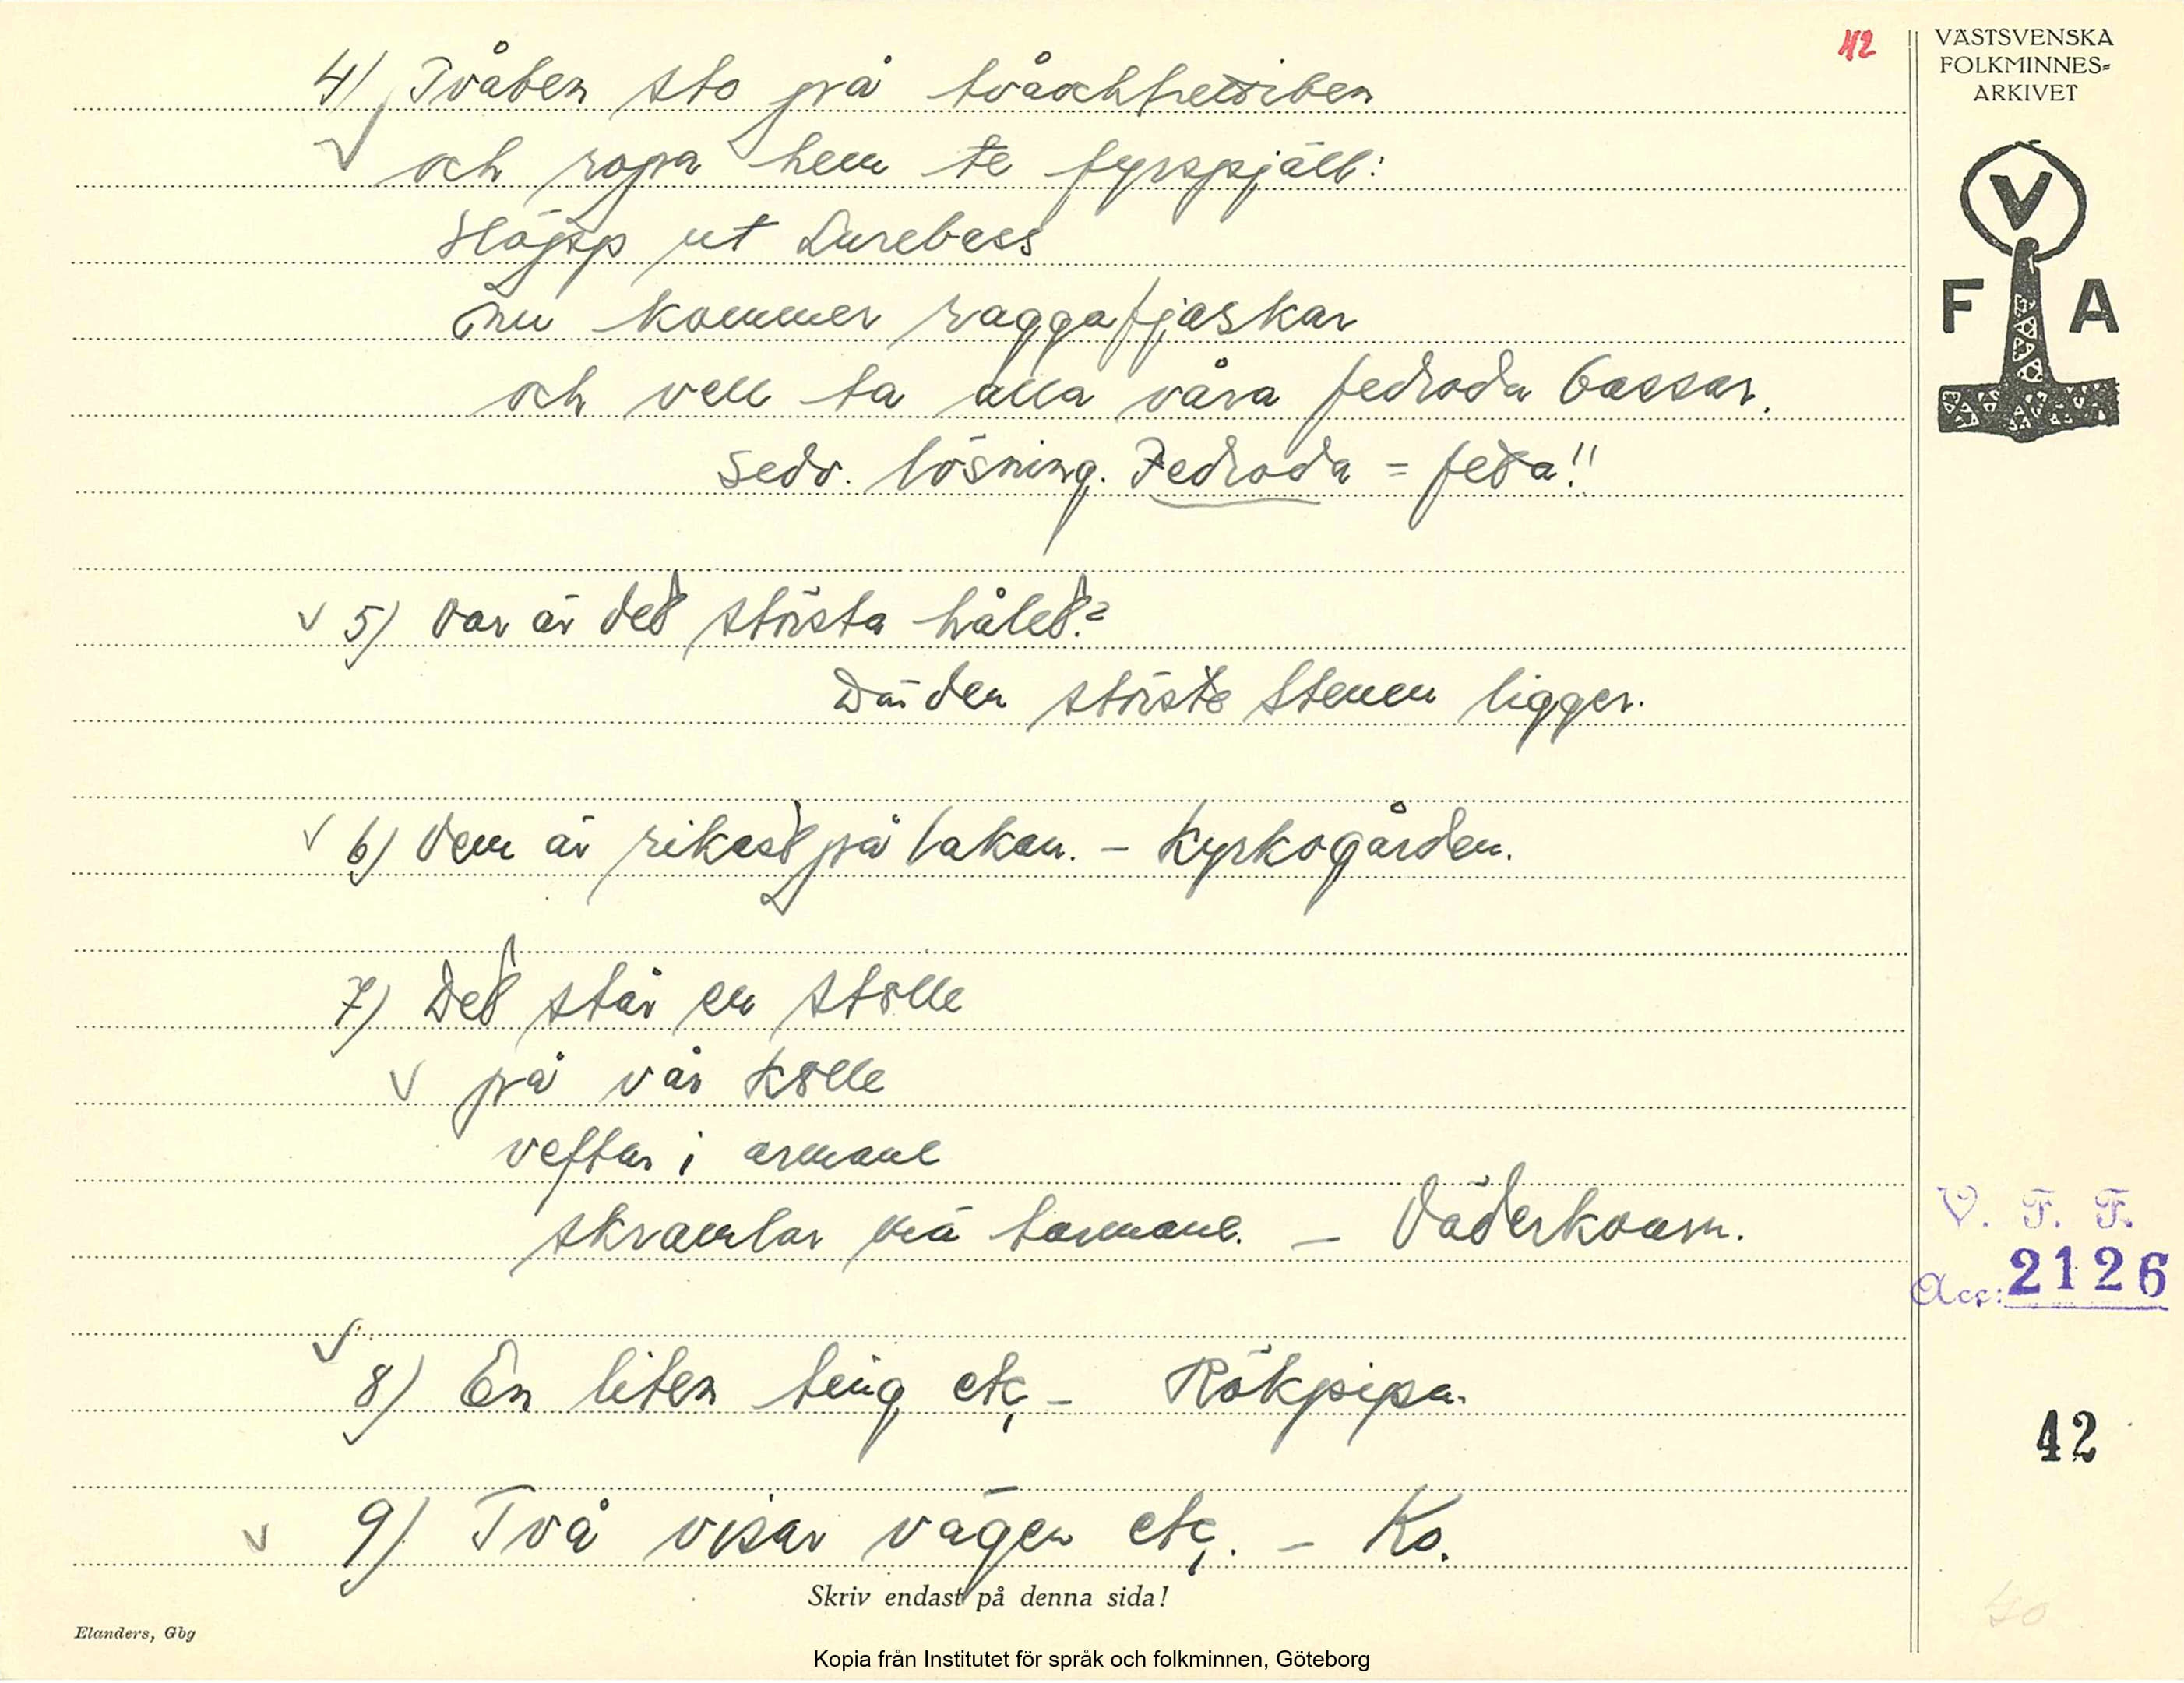 42
VÄSTSVENSKA
FOLKMINNES=
ARKIVET
V
F A
4) Tvåben sto på tvåochtrettiben
och ropa hem te fyrspjäll:
Släpp ut Lurebass
nu kommer raggafjaskar
och vell ta alla våra fedroda bassar.
Sedv. lösning. Fedroda = feta!!
5) Var är det största hålet?
Där den största stenen ligger.
6) Vem är rikast på lakan. – Kyrkogården.
7) Det står en stolle
på vår kolle
veftar i armane
skramlar mä tarmane. – Väderkvarn.
8) En liten teig etc, – Rökpipa.
9) Två visar vägen etc,. – Ko.
V. F. F.
Acc: 2126
42
40
Skriv endast på denna sida!
Elanders, Gbg
Kopia från Institutet för språk och folkminnen, Göteborg